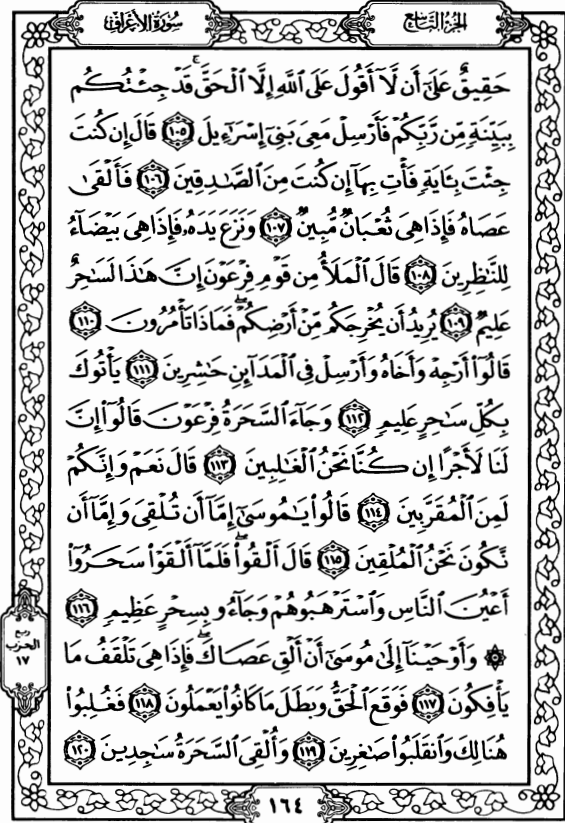 سُورَةُ الأَعْرَافِ
الجُزْءُ التَّاسِعُ
حَقِيقٌ عَلَىٰٓ أَن لَّآ أَقُولَ عَلَى ٱللَّهِ إِلَّا ٱلْحَقَّ ۚ قَدْ جِئْتُكُم
بِبَيِّنَةٍ مِّن رَّبِّكُمْ فَأَرْسِلْ مَعِىَ بَنِىٓ إِسْرَٰٓءِيلَ ١٠٥ قَالَ إِن كُنتَ
جِئْتَ بِـَٔايَةٍ فَأْتِ بِهَآ إِن كُنتَ مِنَ ٱلصَّـٰدِقِينَ ١٠٦ فَأَلْقَىٰ
عَصَاهُ فَإِذَا هِىَ ثُعْبَانٌ مُّبِينٌ ١٠٧ وَنَزَعَ يَدَهُۥ فَإِذَا هِىَ بَيْضَآءُ
لِلنَّـٰظِرِينَ ١٠٨ قَالَ ٱلْمَلَأُ مِن قَوْمِ فِرْعَوْنَ إِنَّ هَـٰذَا لَسَـٰحِرٌ
عَلِيمٌ ١٠٩ يُرِيدُ أَن يُخْرِجَكُم مِّنْ أَرْضِكُمْ ۖ فَمَاذَا تَأْمُرُونَ ١١٠
قَالُوٓا۟ أَرْجِهْ وَأَخَاهُ وَأَرْسِلْ فِى ٱلْمَدَآئِنِ حَـٰشِرِينَ ١١١ يَأْتُوكَ
بِكُلِّ سَـٰحِرٍ عَلِيمٍ ١١٢ وَجَآءَ ٱلسَّحَرَةُ فِرْعَوْنَ قَالُوٓا۟ إِنَّ
لَنَا لَأَجْرًا إِن كُنَّا نَحْنُ ٱلْغَـٰلِبِينَ ١١٣ قَالَ نَعَمْ وَإِنَّكُمْ
لَمِنَ ٱلْمُقَرَّبِينَ ١١٤ قَالُوا۟ يَـٰمُوسَىٰٓ إِمَّآ أَن تُلْقِىَ وَإِمَّآ أَن
نَّكُونَ نَحْنُ ٱلْمُلْقِينَ ١١٥ قَالَ أَلْقُوا۟ ۖ فَلَمَّآ أَلْقَوْا۟ سَحَرُوٓا۟
أَعْيُنَ ٱلنَّاسِ وَٱسْتَرْهَبُوهُمْ وَجَآءُو بِسِحْرٍ عَظِيمٍ ١١٦
۞ وَأَوْحَيْنَآ إِلَىٰ مُوسَىٰٓ أَنْ أَلْقِ عَصَاكَ ۖ فَإِذَا هِىَ تَلْقَفُ مَا
يَأْفِكُونَ ١١٧ فَوَقَعَ ٱلْحَقُّ وَبَطَلَ مَا كَانُوا۟ يَعْمَلُونَ ١١٨ فَغُلِبُوا۟
هُنَالِكَ وَٱنقَلَبُوا۟ صَـٰغِرِينَ ١١٩ وَأُلْقِىَ ٱلسَّحَرَةُ سَـٰجِدِينَ ١٢٠
ربع
الحزب
١٧
١٦٤